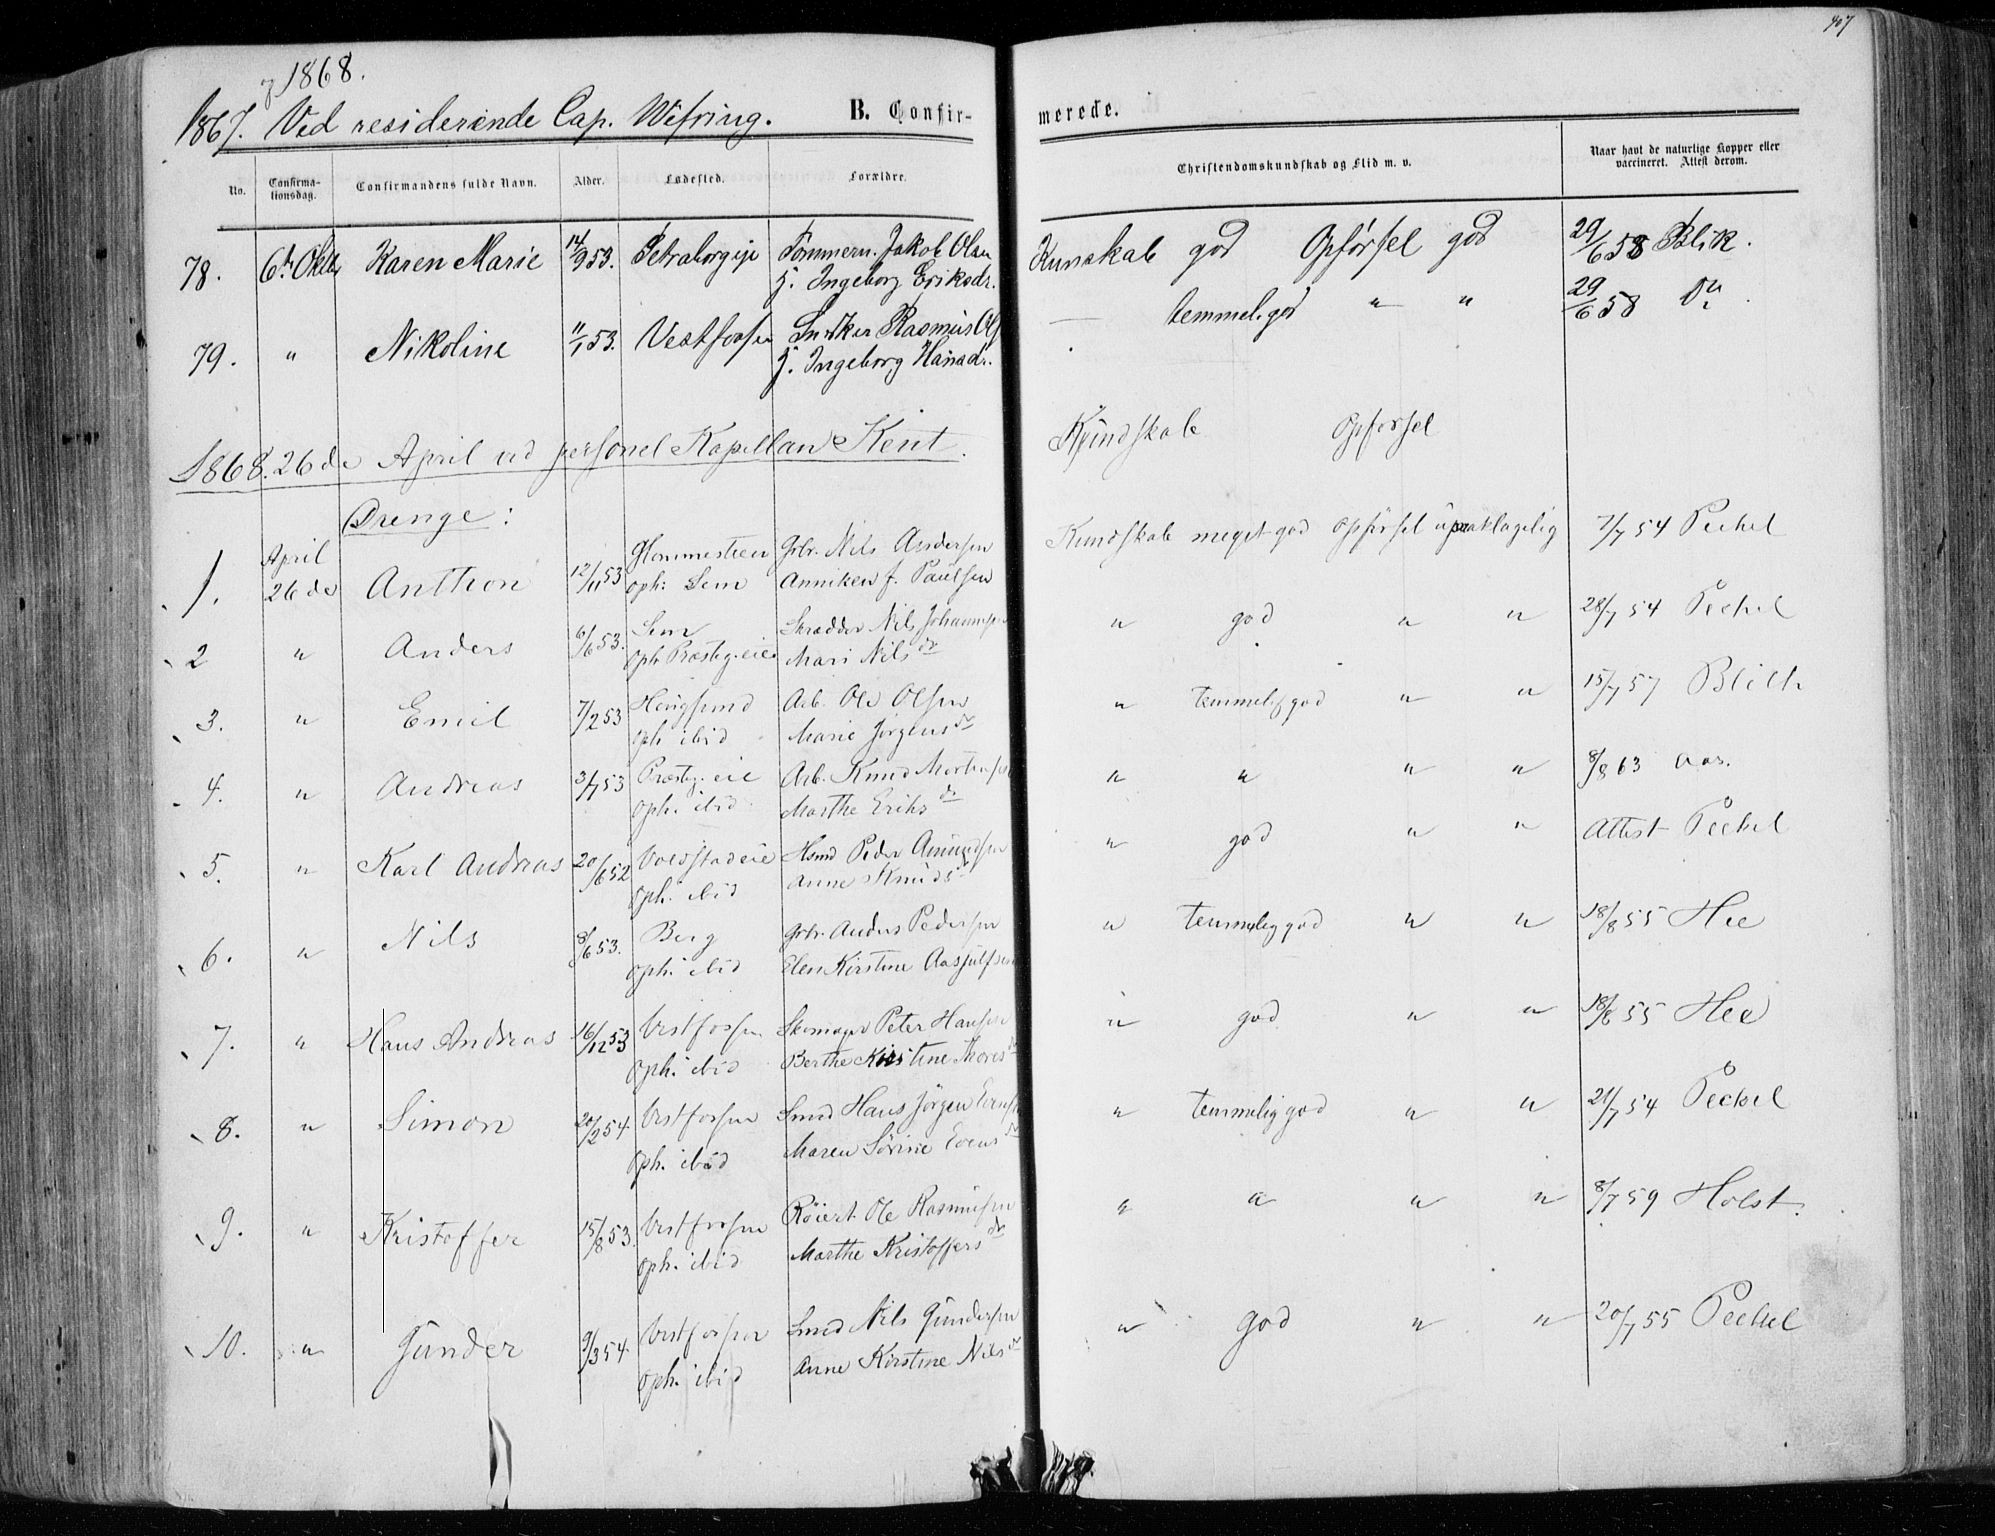 407
& 1868.
1867. Ved residerende Cap. Wefring. B. Confirmerede.
No. Confirmationsdag. Confirmandens fulde Navn. Alder. Fødested. Forældre. Christendomskundskab og Flid m. v. Naar havt de naturlige Kopper eller vaccineret. Attest derom.
78. 6te Oktb Karen Marie 14/9 53. Tømmerm. Jakob Olsen Kunskab god Opførsel god 29/6 58 Blik.
h. Ingeborg Eriksdr.
79. " Nikoline 11/1 53. Vestfossen Rasmus Ols — temmel. god " " 29/6 58 Do
h. Ingeborg Hansdr.
1868. 26de April ved personel Kapellan Kent. Kundskab Opførsel
Drenge:
April
1. 26de Anthon 12/11 53 Gbr. Nils Andersen Kundskab meget god Opførsel upaaklagelig 7/7 54 Peckel
oph: Sem Anniken f. Paulsen
2 " Anders 6/6 53. Sem Skrædder Nils Johannesen " god " " 28/7 54 Peckel
oph Præsteg.eie Mari Nilsdr
3. " Emil 7/2 53 Hougsund Arb. Ole Olsen " temmelig god " " 15/7 57 Blich
oph ibid Marie Jørgensdr
4. " Andreas 3/7 53 Præsteg.eie Arb. Knud Mortensen " " " " 8/8 63 Aas.
oph. ibid Marthe Eriksdr
5. " Karl Andreas 20/6 52 Voldstadeie Hsmd Peder Amundsen " god " " Attest Peckel
oph. ibid Anne Knudsdr
6. " Nils 8/6 53. Berg Gbr. Anders Pedersen " temmelig god " " 18/8 55 Hee
oph. ibid Elen Kirstine
7. " Hans Andreas 16/12 53 Vestfossen Skomager Peter Hansen " god " " 18/8 55 Hee
oph. ibid Berthe Kirstine Thoresdr
8. " Simon 20/2 54. Vestfossen Smed Hans Jørgen " temmelig god " " 21/7 54 Peckel
oph. ibid Maren Sørine Evensdr
9. " Kristoffer 15/8 53. Vestfossen Ole Rasmusen " " " " 8/7 59 Holst.
oph. ibid Marthe Kristoffersdr
10. " Gunder 9/3 54. Vestfossen Smed Nils Gundersen " god " " 20/7 55 Peckel
oph. ibid Anne Kirstine Nilsdr